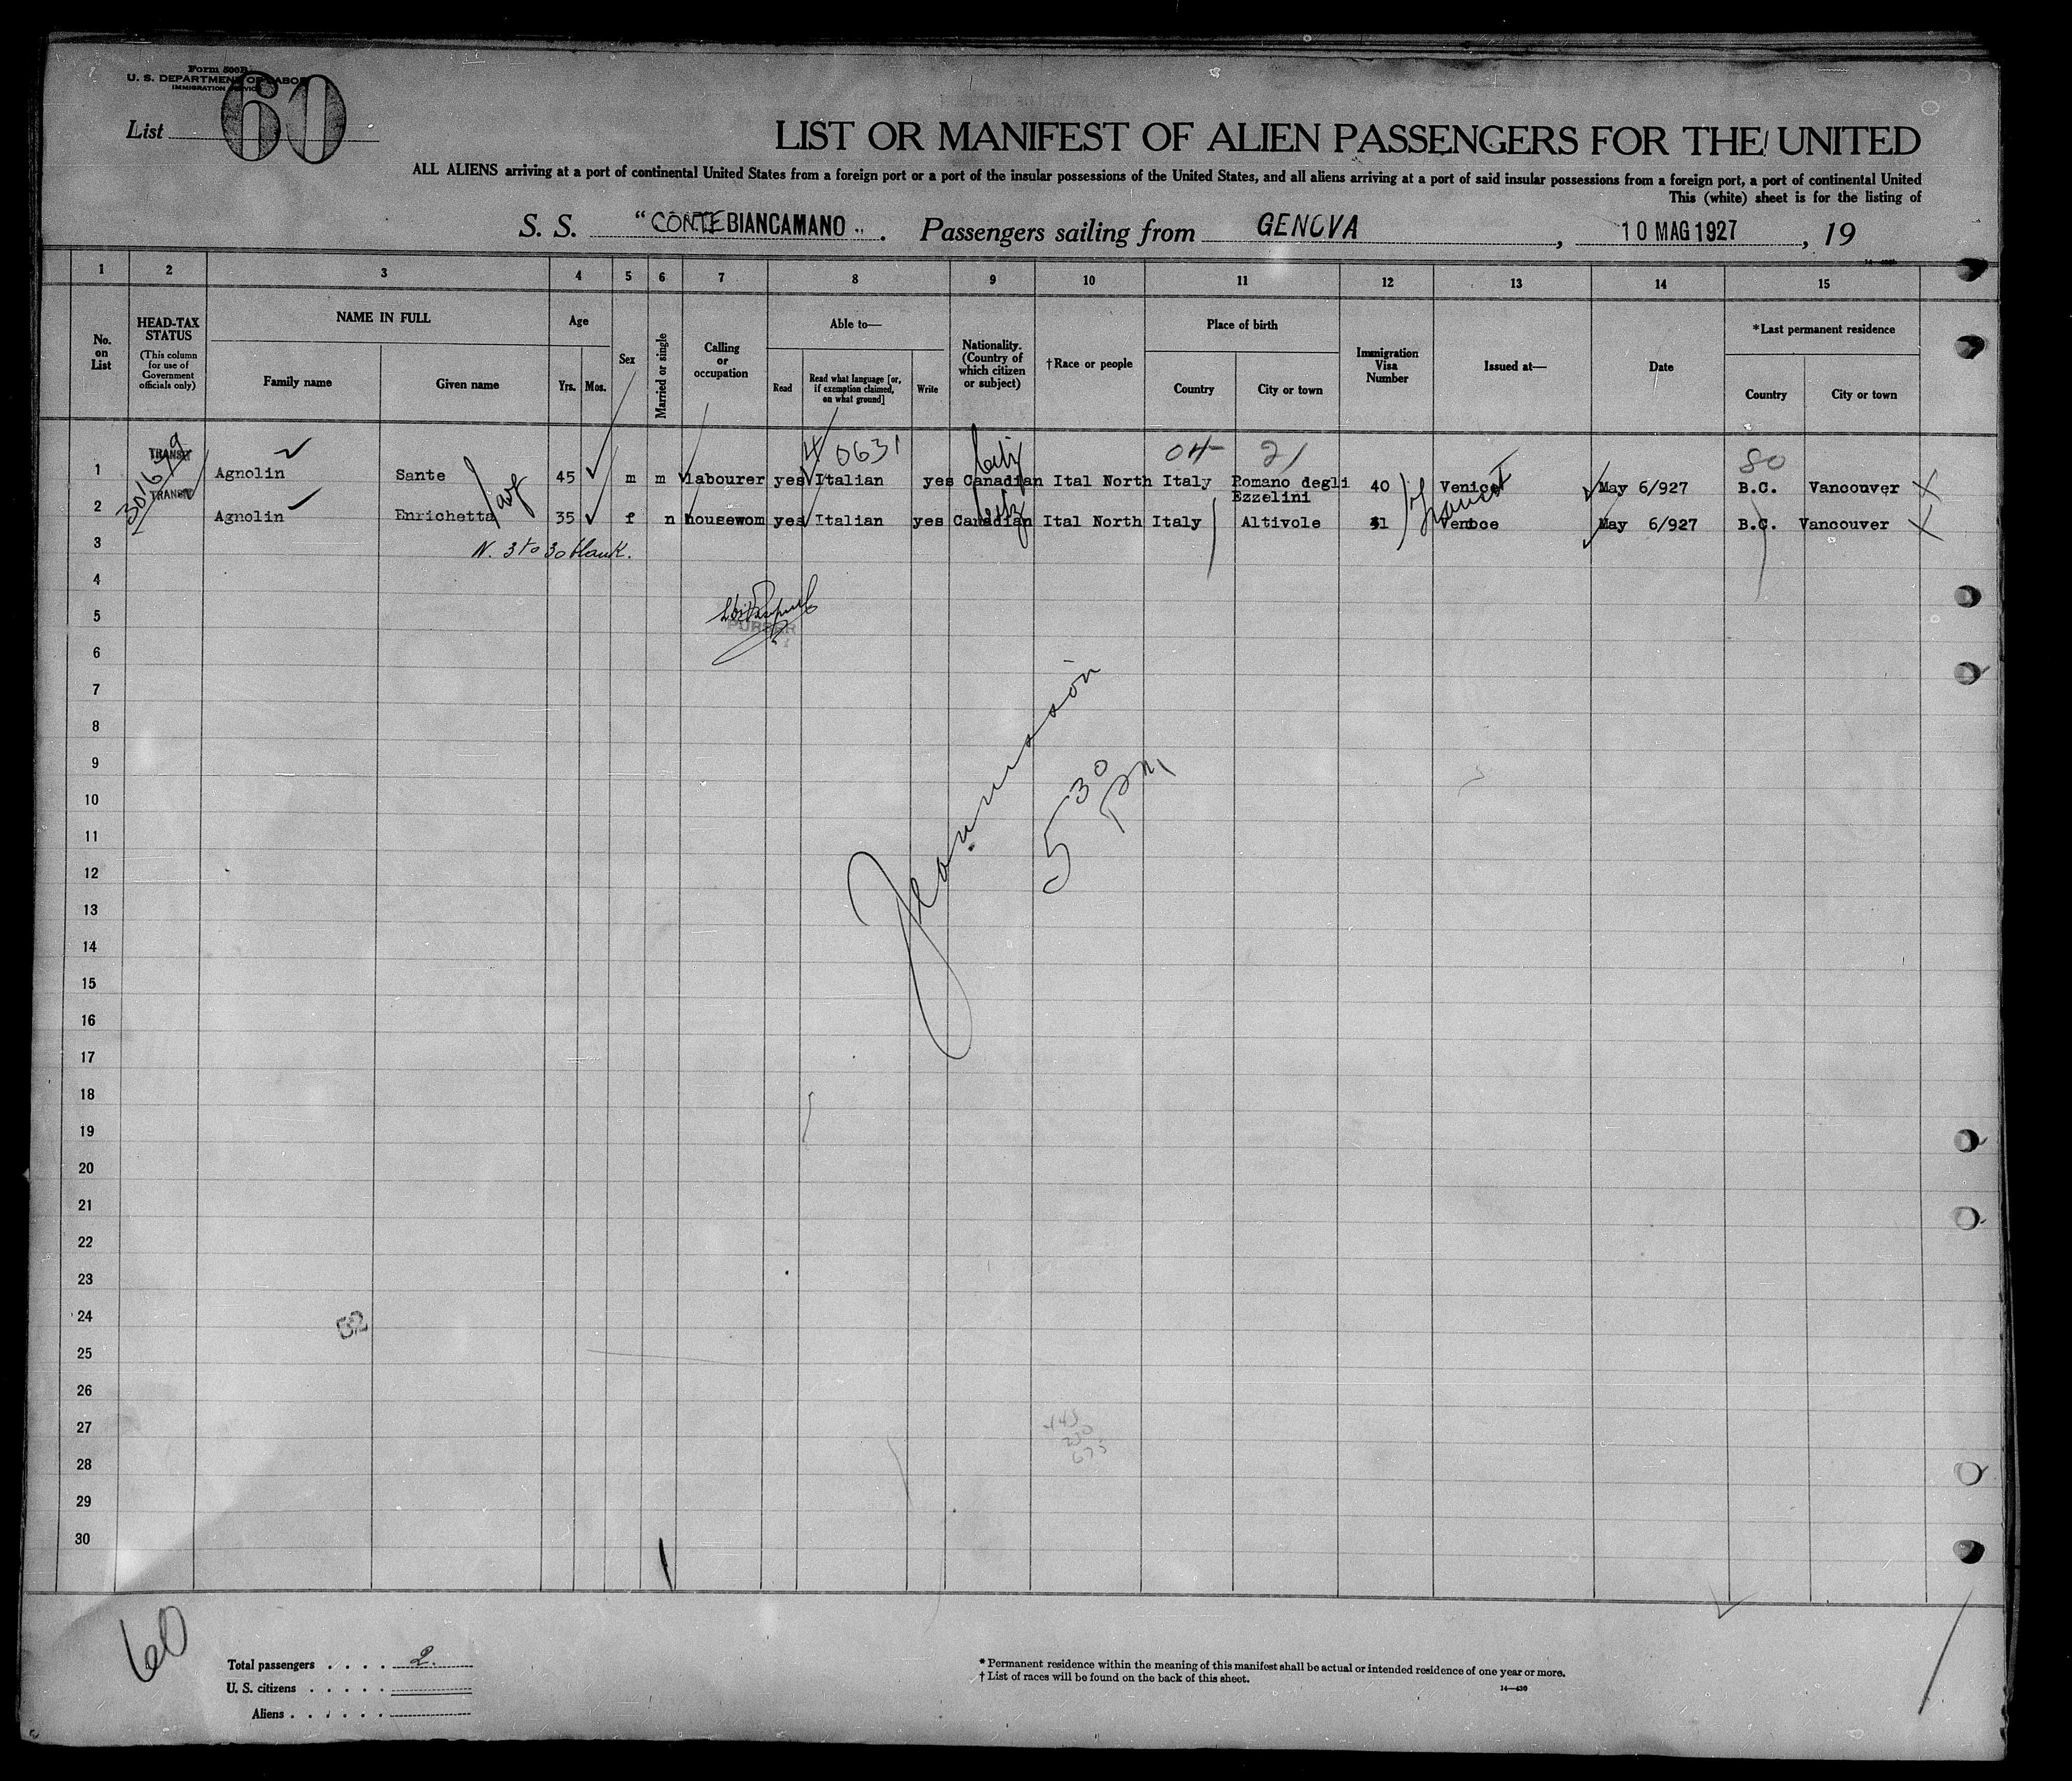 Form 500B
U. S. DEPARTMENT OF LABOR
IMMIGRATION SERVICE
List 60
LIST OR MANIFEST OF ALIEN PASSENGERS FOR THE UNITED
ALL ALIENS arriving at a port of continental United States from a foreign port or a port of the insular possessions of the United States, and all aliens arriving at a port of said insular possessions from a foreign port, a port of continental United
This (white) sheet is for the listing of
S. S. "CONTE BIANCAMANO". Passengers sailing from GENOVA, 10 MAG 1927, 19
1 2 3 4 5 6 7 8 9 10 11 12 13 14 15
No. on List
HEAD-TAX STATUS
(This column for use of Government officials only)
NAME IN FULL
Family name Given name
Age
Yrs. Mos.
Sex
Married or single
Calling or occupation
Able to—
Read
Read what language [or, if exemption claimed, on what ground]
Write
Nationality. (Country of which citizen or subject)
†Race or people
Place of birth
Country City or town
Immigration Visa Number
Issued at—
Date
*Last permanent residence
Country City or town
0631 04 21 80
1 TRANSIT Agnolin Sante 45 m m labourer yes Italian yes Canadian Ital North Italy Romano degli Ezzelini 40 Venice May 6/927 B.C. Vancouver X
2 TRANSIT Agnolin Enrichetta 35 f m housewom yes Italian yes Canadian Ital North Italy Altivole 41 Venice May 6/927 B.C. Vancouver X
3 N. 3 to 30 blank.
4
5
PURSER
6
7
8
9
5 30 pm
10
11
12
13
14
15
16
17
18
19
20
21
22
23
24
52
25
26
27
28
29
30
60
Total passengers . . . . 2.
U. S. citizens . . . . .
Aliens . . . . . .
* Permanent residence within the meaning of this manifest shall be actual or intended residence of one year or more.
† List of races will be found on the back of this sheet.
14—430